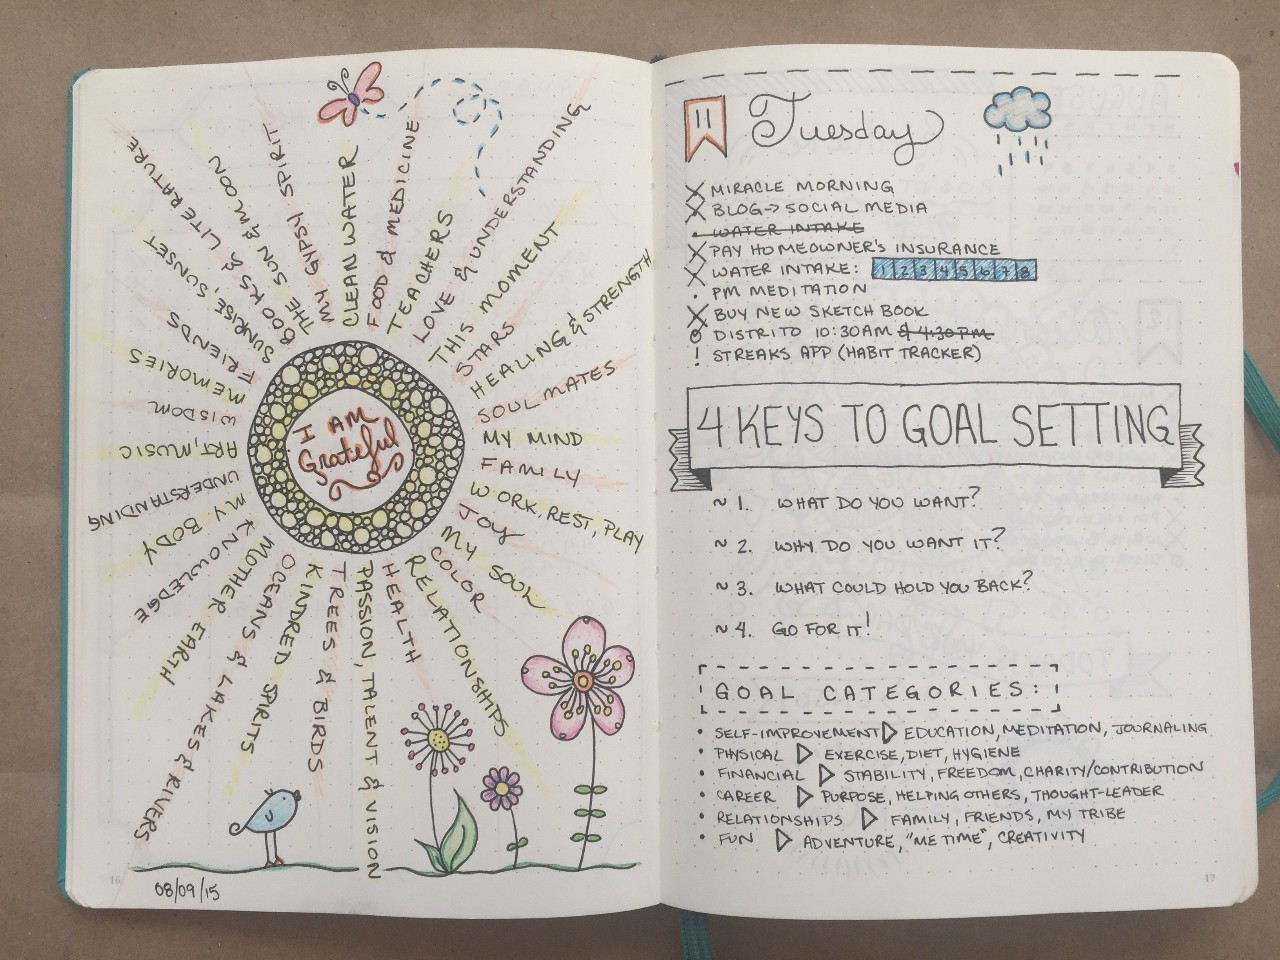 I AM
Grateful
CLEAN WATER
FOOD & MEDICINE
TEACHERS
LOVE & UNDERSTANDING
THIS MOMENT
STARS
HEALING & STRENGTH
SOULMATES
MY MIND
FAMILY
WORK, REST, PLAY
JOY
MY SOUL
COLOR
RELATIONSHIPS
HEALTH
PASSION, TALENT & VISION
TREES & BIRDS
KINDRED SPIRITS
OCEANS & LAKES & RIVERS
MOTHER EARTH
KNOWLEDGE
MY BODY
UNDERSTANDING
ART, MUSIC
WISDOM
MEMORIES
FRIENDS
SUNRISE, SUNSET
BOOKS & LITERATURE
THE SUN & MOON
MY GYPSY SPIRIT
08/09/15
16
11 Tuesday
X MIRACLE MORNING
X BLOG → SOCIAL MEDIA
• WATER INTAKE
X PAY HOMEOWNER'S INSURANCE
X WATER INTAKE: 1 2 3 4 5 6 7 8
• PM MEDITATION
X BUY NEW SKETCH BOOK
O DISTRITO 10:30AM & 4:30PM
! STREAKS APP (HABIT TRACKER)
4 KEYS TO GOAL SETTING
~ 1. WHAT DO YOU WANT?
~ 2. WHY DO YOU WANT IT?
~ 3. WHAT COULD HOLD YOU BACK?
~ 4. GO FOR IT!
GOAL CATEGORIES:
• SELF-IMPROVEMENT ▷ EDUCATION, MEDITATION, JOURNALING
• PHYSICAL ▷ EXERCISE, DIET, HYGIENE
• FINANCIAL ▷ STABILITY, FREEDOM, CHARITY/CONTRIBUTION
• CAREER ▷ PURPOSE, HELPING OTHERS, THOUGHT-LEADER
• RELATIONSHIPS ▷ FAMILY, FRIENDS, MY TRIBE
• FUN ▷ ADVENTURE, "ME TIME", CREATIVITY
17